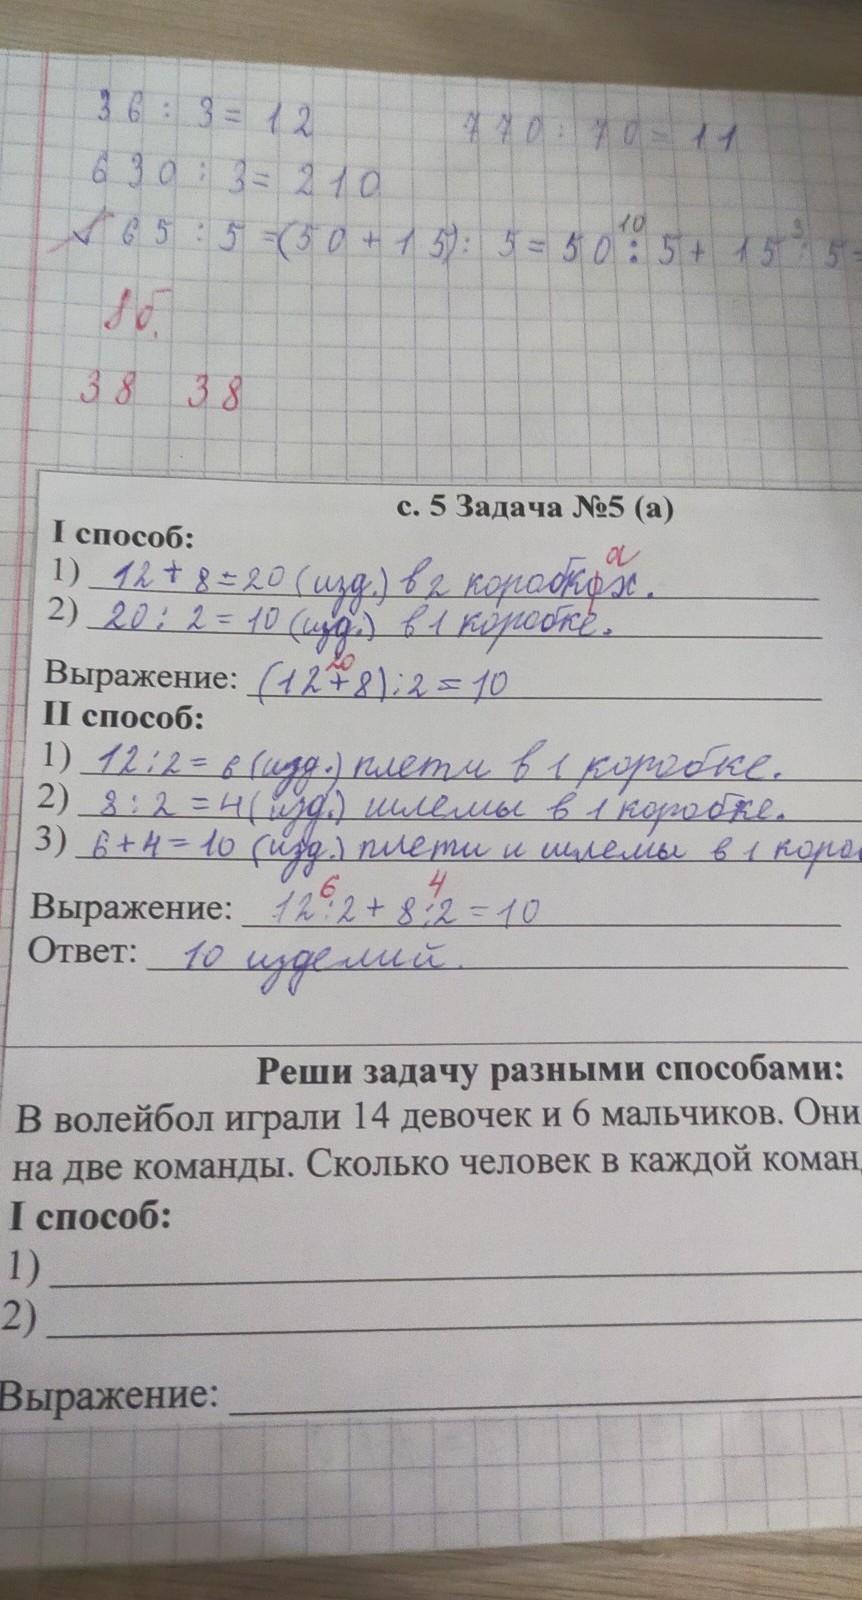 36 : 3 = 12
770 : 70 = 11
630 : 3 = 210
10 3
65 : 5 = (50 + 15) : 5 = 50 : 5 + 15 : 5 =
38 38
с. 5 Задача №5 (а)
I способ:
а
1) 12 + 8 = 20 (изд.) в 2 коробках.
2) 20 : 2 = 10 (изд.) в 1 коробке.
20
Выражение: (12 + 8) : 2 = 10
II способ:
1) 12 : 2 = 6 (изд.) плети в 1 коробке.
2) 8 : 2 = 4 (изд.) шлемы в 1 коробке.
3) 6 + 4 = 10 (изд.) плети и шлемы в 1 короб
6 4
Выражение: 12 : 2 + 8 : 2 = 10
Ответ: 10 изделий.
Реши задачу разными способами:
В волейбол играли 14 девочек и 6 мальчиков. Они
на две команды. Сколько человек в каждой коман
I способ:
1)
2)
Выражение: